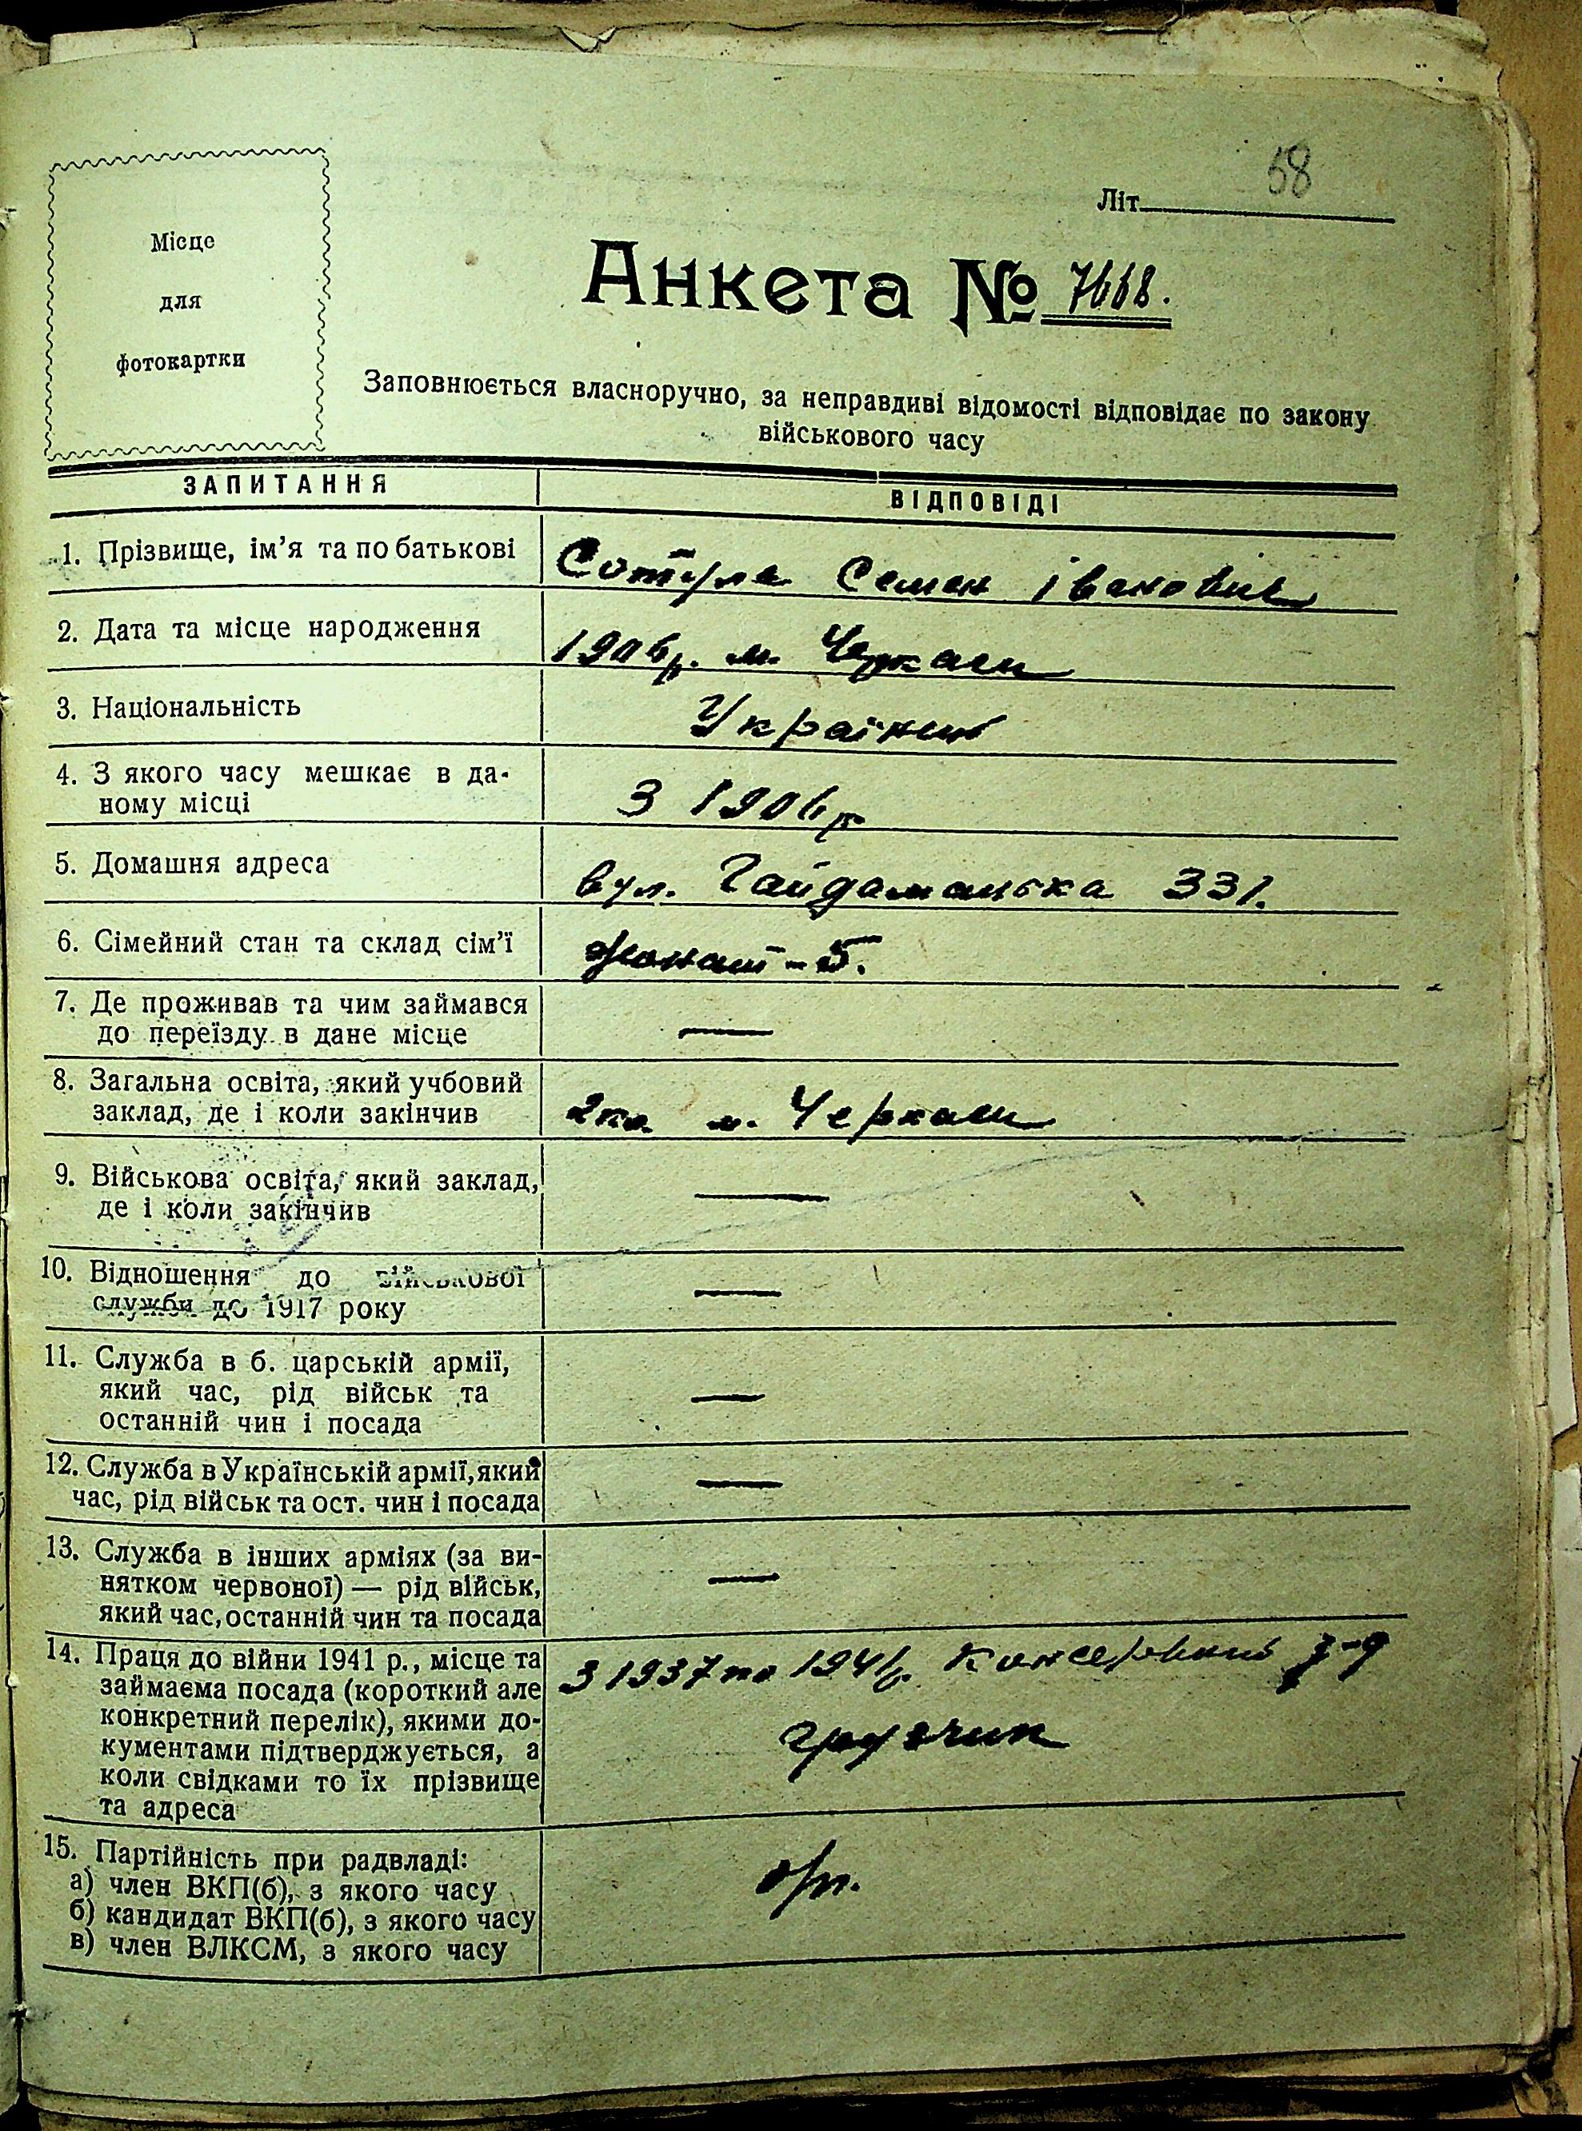 58
Літ
Місце
для
фотокартки
Анкета № 7668.
Заповнюється власноручно, за неправдиві відомості відповідає по закону
військового часу
ЗАПИТАННЯ
ВІДПОВІДІ
1. Прізвище, ім’я та по батькові
Сотула Семен Іванович
2. Дата та місце народження
1906 р. м. Черкаси
3. Національність
Українець
4. З якого часу мешкає в да-
ному місці
З 1906 р.
5. Домашня адреса
вул. Гайдамацька 331.
6. Сімейний стан та склад сім’ї
жонат - 5.
7. Де проживав та чим займався
до переїзду в дане місце
—
8. Загальна освіта, який учбовий
заклад, де і коли закінчив
2 кл м. Черкаси
9. Військова освіта, який заклад,
де і коли закінчив
—
10. Відношення до військової
служби до 1917 року
—
11. Служба в б. царській армії,
який час, рід військ та
останній чин і посада
—
12. Служба в Українській армії, який
час, рід військ та ост. чин і посада
—
13. Служба в інших арміях (за ви-
нятком червоної) — рід військ,
який час, останній чин та посада
—
14. Праця до війни 1941 р., місце та
займаєма посада (короткий але
конкретний перелік), якими до-
кументами підтверджується, а
коли свідками то їх прізвище
та адреса
З 1937 по 1941 р. Консервний з-д
грузчик
15. Партійність при радвладі:
а) член ВКП(б), з якого часу
б) кандидат ВКП(б), з якого часу
в) член ВЛКСМ, з якого часу
б/п.